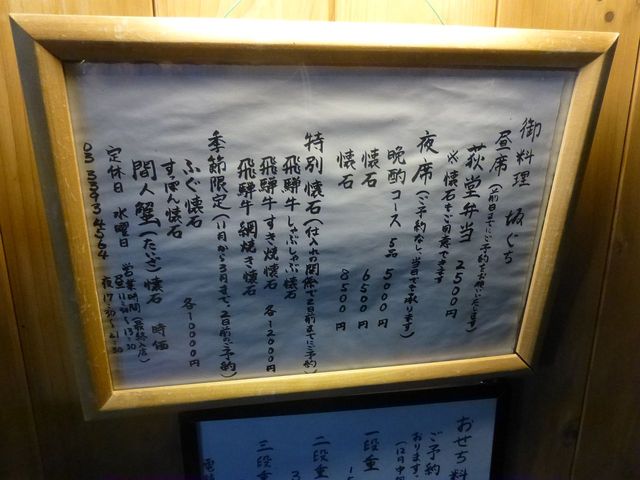 御料理 坂ぐち
昼席(前日までにご予約をお願いいたします)
萩堂弁当 2500円
※懐石もご用意できます
夜席(ご予約なし、当日でも承ります)
晩酌コース 5品 5000円
懐石 6500円
懐石 8500円
特別懐石(仕入れの関係で2日前までにご予約)
飛騨牛しゃぶしゃぶ懐石
飛騨牛すき焼懐石 各12000円
飛騨牛網焼き懐石
季節限定(11月から3月まで、2日前のご予約)
ふぐ懐石 各10000円
すっぽん懐石
間人蟹(たいざ)懐石 時価
営業時間(最終入店)
定休日 水曜日 昼11:30~13:30
夜17:30~21:30
03 3393 4564
おせち料
ご予約
おります
(12月中旬
一段重
二段重
三段重
電話